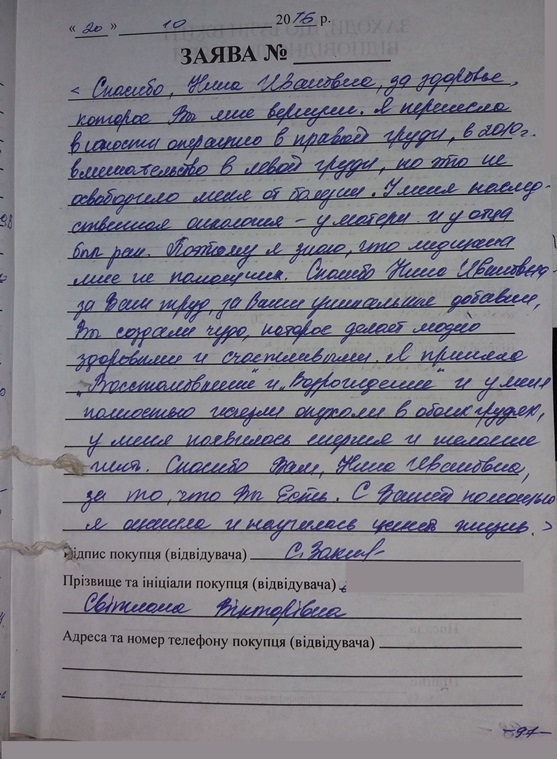 « 20 » 10 2016 р.
ЗАЯВА №
< Спасибо, Нина Ивановна, за здоровье,
которое Вы мне вернули. Я перенесла
в юности операцию в правой груди, в 2010г.
вмешательство в левой груди, но это не
освободило меня от болезни. У меня наслед-
ственная онкология – у матери и у отца
был рак. Поэтому я знаю, что медицина
мне не помощник. Спасибо Нина Ивановна
за Ваш труд, за Ваши уникальные добавки,
Вы создали чудо, которое делает людей
здоровыми и счастливыми. Я приняла
"Восстановление" и "Возрождение" и у меня
полностью исчезли опухоли в обоих грудях,
у меня появилось энергия и желание
жить. Спасибо Вам, Нина Ивановна,
за то, что Вы Есть. С Вашей помощью
я ожила и научилась жизнь. >
Підпис покупця (відвідувача) С.
Прізвище та ініціали покупця (відвідувача)
Світлана Вікторівна
Адреса та номер телефону покупця (відвідувача)
-97-